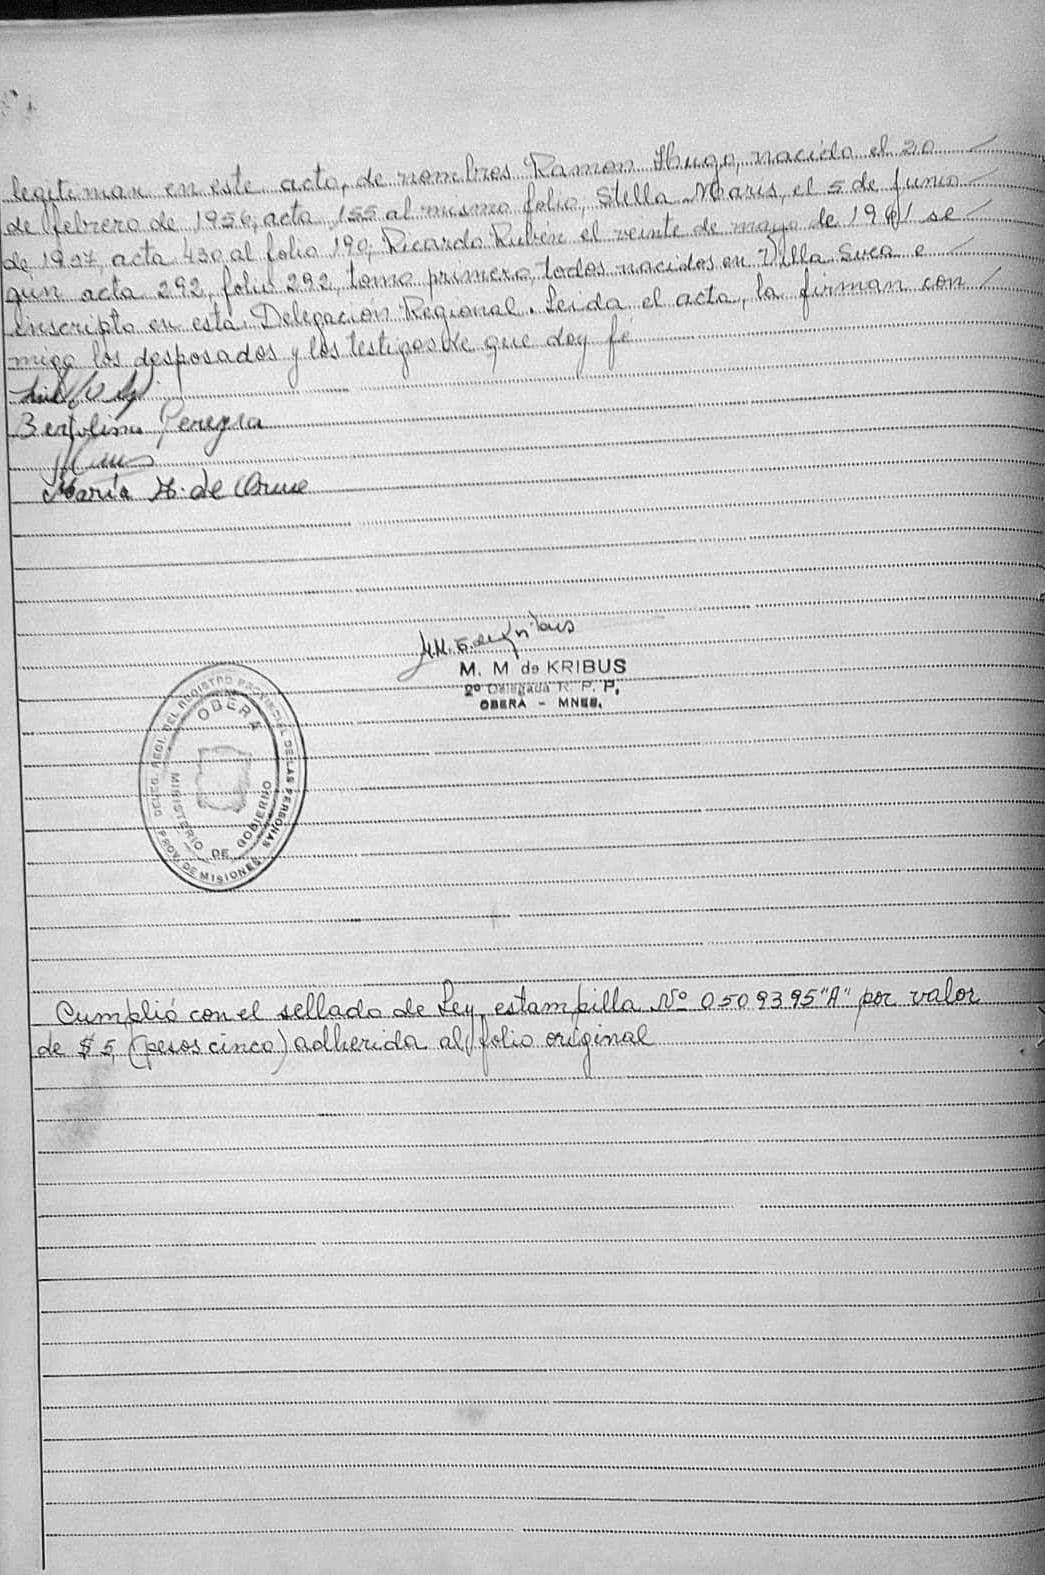 legitiman en este acto, de nombres Ramon Hugo, nacido el 20
de febrero de 1956, acta 155 al mismo folio, Stella Maris, el 5 de Junio
de 1957, acta 430 al folio 190; Ricardo Rubén el veinte de mayo de 1961 se
gún acta 292, folio 292, tomo primero, todos nacidos en Villa Svea e
inscripto en esta Delegación Regional. Leida el acta, la firman con
migo los desposados y los testigos de que doy fé
Bertolina Pereyra
Maria H. de
M. M. de Kribus
M. M de KRIBUS
2º Delegada R. P. P.
OBERA - MNES.
DELEG. REGI. DEL REGISTRO PROVINCIAL DE LAS PERSONAS
OBERA
MINISTERIO DE GOBIERNO
PROV. DE MISIONES
Cumplió con el sellado de Ley, estampilla Nº 0509395 "A" por valor
de $ 5 (pesos cinco) adherida al folio original